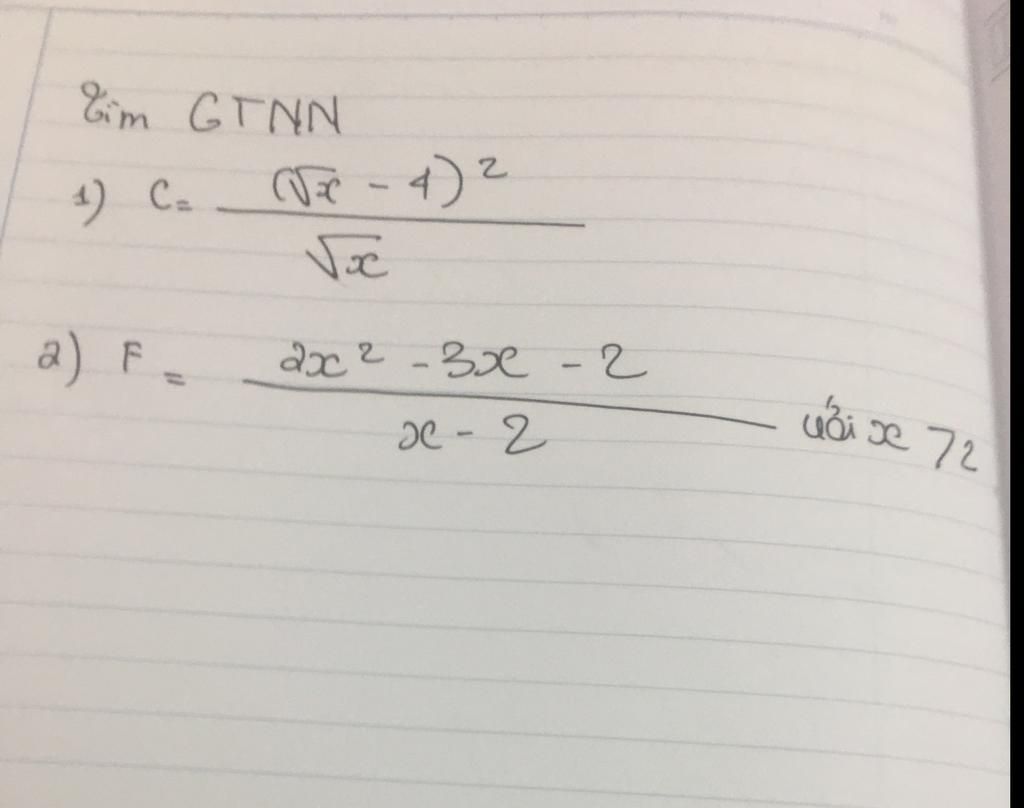 Tìm GTNN
1) C = (√x - 4)² / √x
2) F = 2x² - 3x - 2 / x - 2 với x > 2